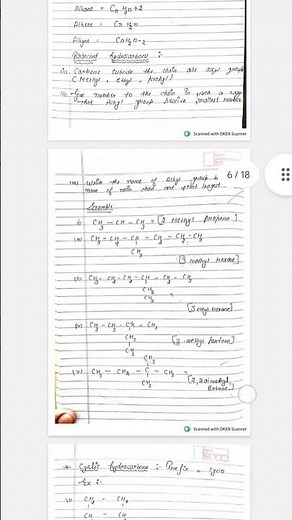 Alkane = CnH2n+2
Alkene = CnH2n
Alkyne = CnH2n-2
Branched hydrocarbons :-
Carbons outside the chain are alkyl group
( Methyl , ethyl , propyl )
number to the chain in such a way
that Alkyl group receive smallest number
Scanned with OKEN Scanner
6 / 18
(iii) Write the name of Alkyl group &
name of main chain
Example
i) CH3 - CH - CH3 = [ 2 Methyl propane ]
(ii) CH3 - CH2 - CH - CH2 - CH2 - CH3
[ 3 methyl Hexane ]
CH3 - CH2 - CH2 - CH - CH2 - CH3
CH2
CH3
[ 3 ethyl Hexane ]
(iv) CH3 - CH2 - CH - CH3
CH2
CH3
[ 3 - Methyl Pentane ]
CH3
(v) CH3 - CH2 - C - CH3 =
CH3
[ 2,2 dimethyl
Butane ]
Scanned with OKEN Scanner
* Cyclic hydrocarbons :- Prefix = cyclo
Ex :-
i) CH2 - CH2
CH2 - CH2